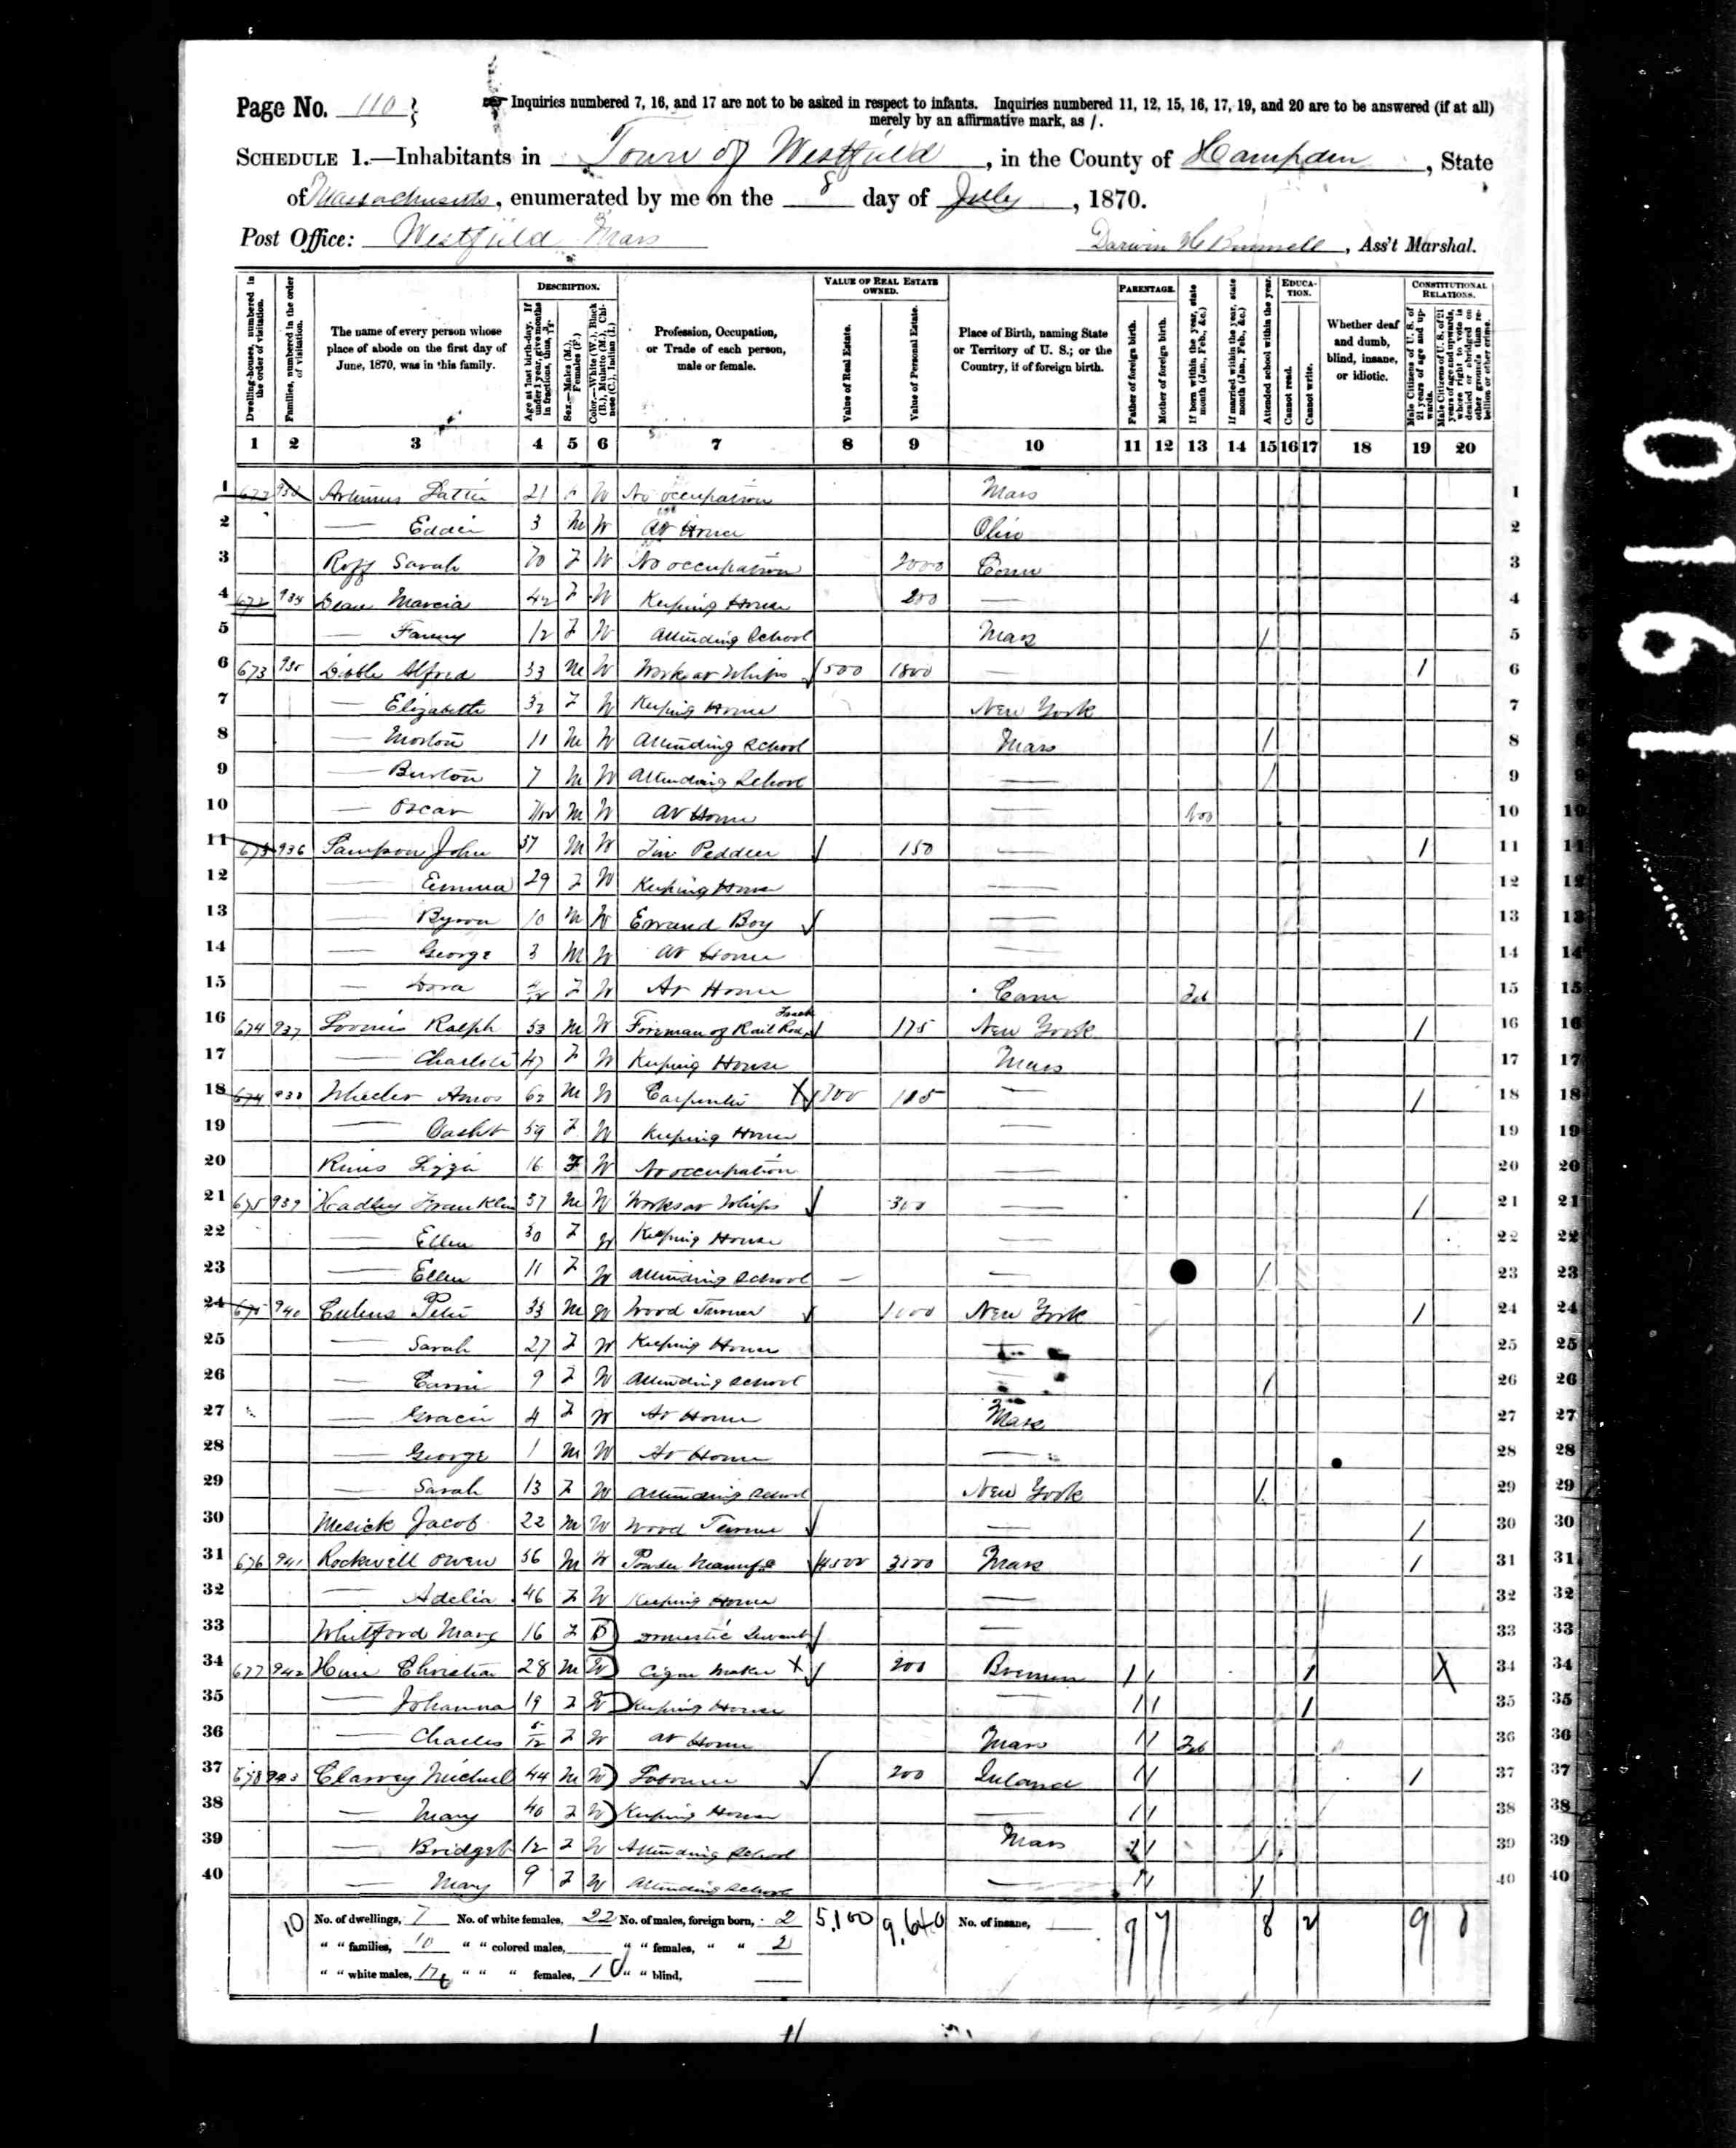 Page No. 110
Inquiries numbered 7, 16, and 17 are not to be asked in respect to infants. Inquiries numbered 11, 12, 15, 16, 17, 19, and 20 are to be answered (if at all)
merely by an affirmative mark, as /.
SCHEDULE 1.—Inhabitants in Town of Westfield, in the County of Hampden, State
of Massachusetts, enumerated by me on the 8 day of July, 1870.
Post Office: Westfield Mass Darwin, Ass't Marshal.
DESCRIPTION. VALUE OF REAL ESTATE OWNED. PARENTAGE. EDUCATION. CONSTITUTIONAL RELATIONS.
Dwelling-houses, numbered in the order of visitation.
Families, numbered in the order of visitation.
The name of every person whose place of abode on the first day of June, 1870, was in this family.
Age at last birth-day. If under 1 year, give months in fractions, thus,
Sex.—Males (M.), Females (F.)
Color.—White (W.), Black (B.), Mulatto (M.), Chinese (C.), Indian (I.)
Profession, Occupation, or Trade of each person, male or female.
Value of Real Estate.
Value of Personal Estate.
Place of Birth, naming State or Territory of U. S.; or the Country, if of foreign birth.
Father of foreign birth.
Mother of foreign birth.
If born within the year, state month (Jan., Feb., &c.)
If married within the year, state month (Jan., Feb., &c.)
Attended school within the year.
Cannot read.
Cannot write.
Whether deaf and dumb, blind, insane, or idiotic.
Male Citizens of U. S. of 21 years of age and upwards.
Male Citizens of U. S. of 21 years of age and upwards, whose right to vote is denied or abridged on other grounds than rebellion or other crime.
1 2 3 4 5 6 7 8 9 10 11 12 13 14 15 16 17 18 19 20
1 21 W No occupation Mass 1
2 — Eddie 3 M W At Home Ohio 2
3 Roff Sarah 70 F W No occupation 2000 Conn 3
4 672 934 Dean Marcia 42 F W Keeping House 200 — 4
5 — Fanny 12 F W Attending School Mass / 5
6 673 935 Dibble Alfred 33 M W Works at Whips 500 1800 — 1 6
7 — Elizabeth 32 F W Keeping House New York 7
8 — Morton 11 M W Attending School Mass / 8
9 — Burton 7 M W Attending School — / 9
10 — Oscar 7/12 M W At Home — Nov 10
11 673 936 Sampson John 37 M W Tin Peddler 150 — 1 11
12 — Emma 29 F W Keeping House — 12
13 — Byron 10 M W Errand Boy — 13
14 — George 3 M W At Home — 14
15 — Dora F W At Home Conn Feb 15
16 674 937 Loomis Ralph 53 M W Foreman of Rail Road Track 175 New York 1 16
17 — Charlotte 47 F W Keeping House Mass 17
18 674 938 Wheeler Amos 62 M W Carpenter X — 1 18
19 — 59 F W Keeping House — 19
20 Lizzie 16 F W No occupation — 20
21 675 939 Hadley Franklin 37 M W Works at Whips 300 — 1 21
22 — Ellen 30 F W Keeping House — 22
23 — Ellen 11 F W Attending School — — / 23
24 675 940 Peter 33 M W Wood Turner 1000 New York 1 24
25 — Sarah 27 F W Keeping House — 25
26 — Carrie 9 F W Attending School / 26
27 — Gracie 4 F W At Home Mass 27
28 — George 1 M W At Home — 28
29 — Sarah 13 F W Attending School New York / 29
30 Mesick Jacob 22 M W Wood Turner — 1 30
31 676 941 Rockwell Owen 56 M W Powder Manufc 4500 3500 Mass 1 31
32 — Adelia 46 F W Keeping House — 32
33 Whitford Mary 16 F B Domestic Servant — 33
34 677 942 Christian 28 M W Cigar Maker X 200 Bremen / / 1 X 34
35 — Johanna 19 F W Keeping House — / / 1 35
36 — Charles 5/12 F W At Home Mass / / Feb 36
37 678 943 Michael 44 M W Laborer 200 Ireland / / 1 37
38 — Mary 40 F W Keeping House — / / 38
39 — Bridget 12 F W Attending School Mass / / / 39
40 — Mary 9 F W Attending School — / / / 40
10 No. of dwellings, 7 No. of white females, 22 No. of males, foreign born, 2 5,100 9,640 No. of insane, 7 7 8 2 9
" " families, 10 " " colored males, " " females, " " 2
" " white males, 17 " " " females, 1 " " blind,
0191